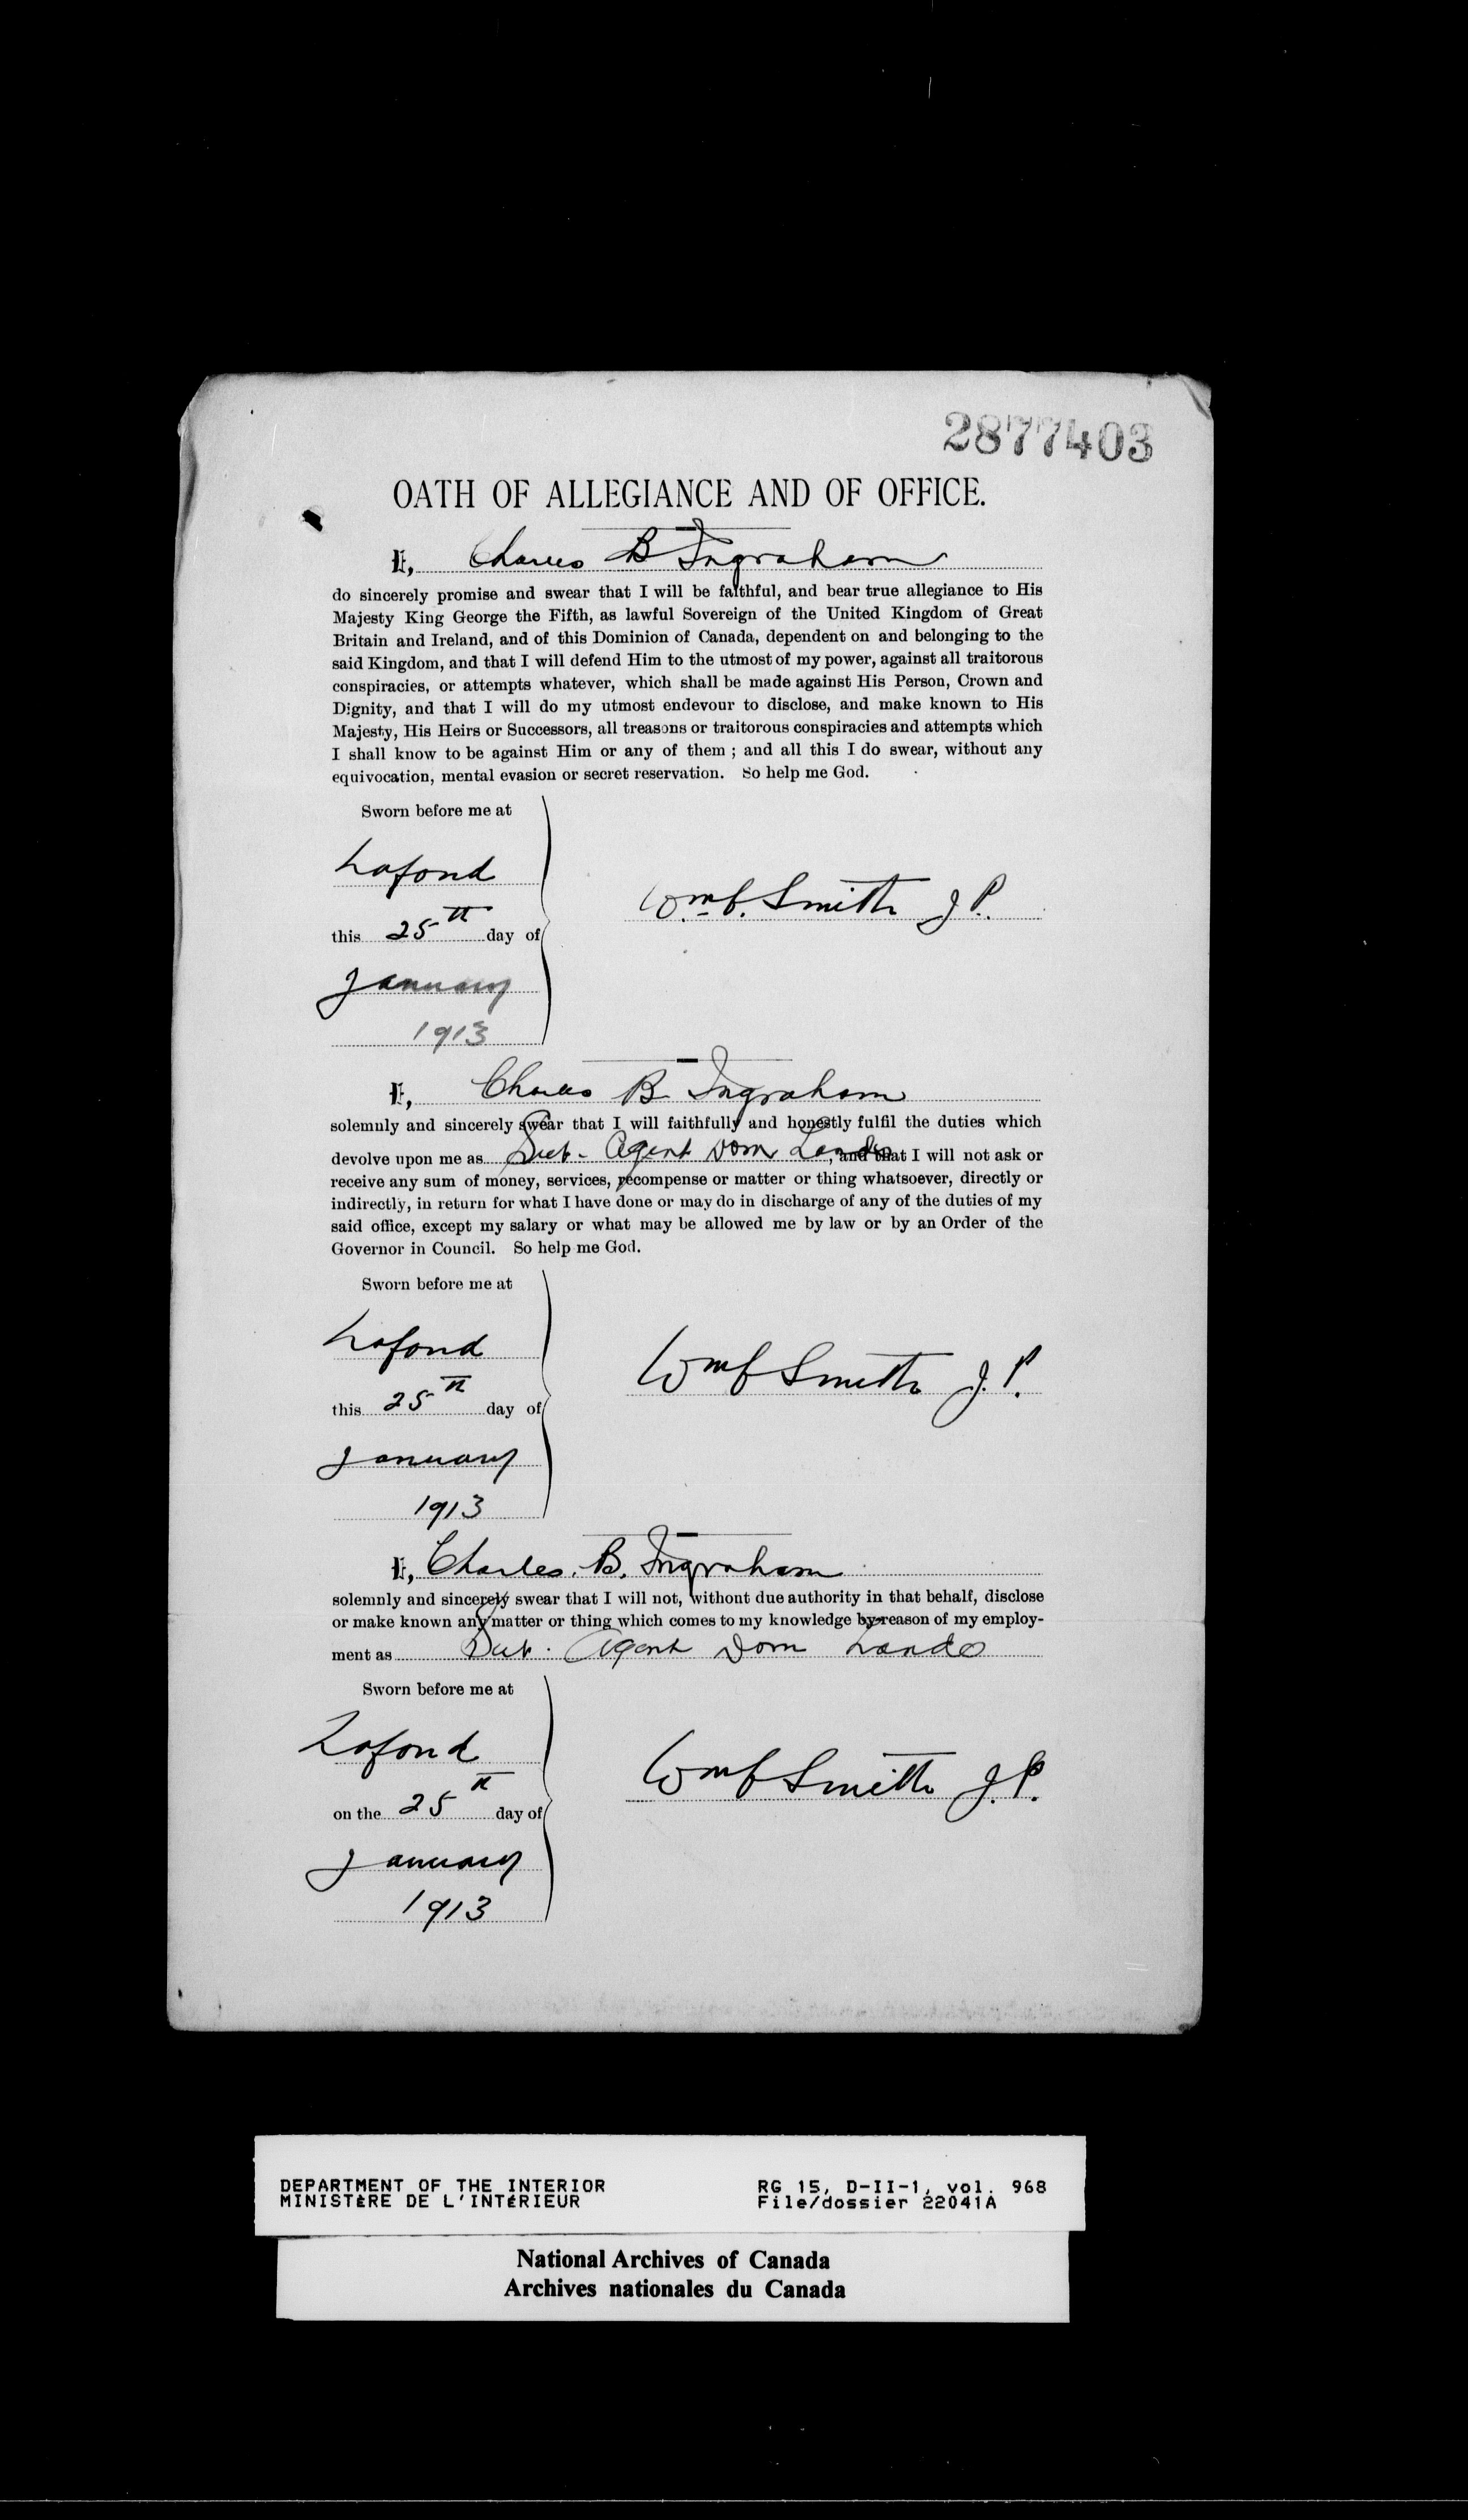 2877403
OATH OF ALLEGIANCE AND OF OFFICE.
I, Charles B Ingraham
do sincerely promise and swear that I will be faithful, and bear true allegiance to His
Majesty King George the Fifth, as lawful Sovereign of the United Kingdom of Great
Britain and Ireland, and of this Dominion of Canada, dependent on and belonging to the
said Kingdom, and that I will defend Him to the utmost of my power, against all traitorous
conspiracies, or attempts whatever, which shall be made against His Person, Crown and
Dignity, and that I will do my utmost endevour to disclose, and make known to His
Majesty, His Heirs or Successors, all treasons or traitorous conspiracies and attempts which
I shall know to be against Him or any of them ; and all this I do swear, without any
equivocation, mental evasion or secret reservation. So help me God.
Sworn before me at
Lafond
this 25th day of
January
1913
Wm C. Smith J P.
I, Charles B Ingraham
solemnly and sincerely swear that I will faithfully and honestly fulfil the duties which
devolve upon me as Sub-Agent Dom Lands, and that I will not ask or
receive any sum of money, services, recompense or matter or thing whatsoever, directly or
indirectly, in return for what I have done or may do in discharge of any of the duties of my
said office, except my salary or what may be allowed me by law or by an Order of the
Governor in Council. So help me God.
Sworn before me at
Lafond
this 25th day of
January
1913
Wm C Smith J.P.
I, Charles. B. Ingraham
solemnly and sincerely swear that I will not, without due authority in that behalf, disclose
or make known any matter or thing which comes to my knowledge by reason of my employ-
ment as Sub. Agent Dom Lands
Sworn before me at
Lafond
on the 25th day of
January
1913
Wm C Smith J.P.
DEPARTMENT OF THE INTERIOR RG 15, D-II-1, vol. 968
MINISTÈRE DE L'INTÉRIEUR File/dossier 22041A
National Archives of Canada
Archives nationales du Canada